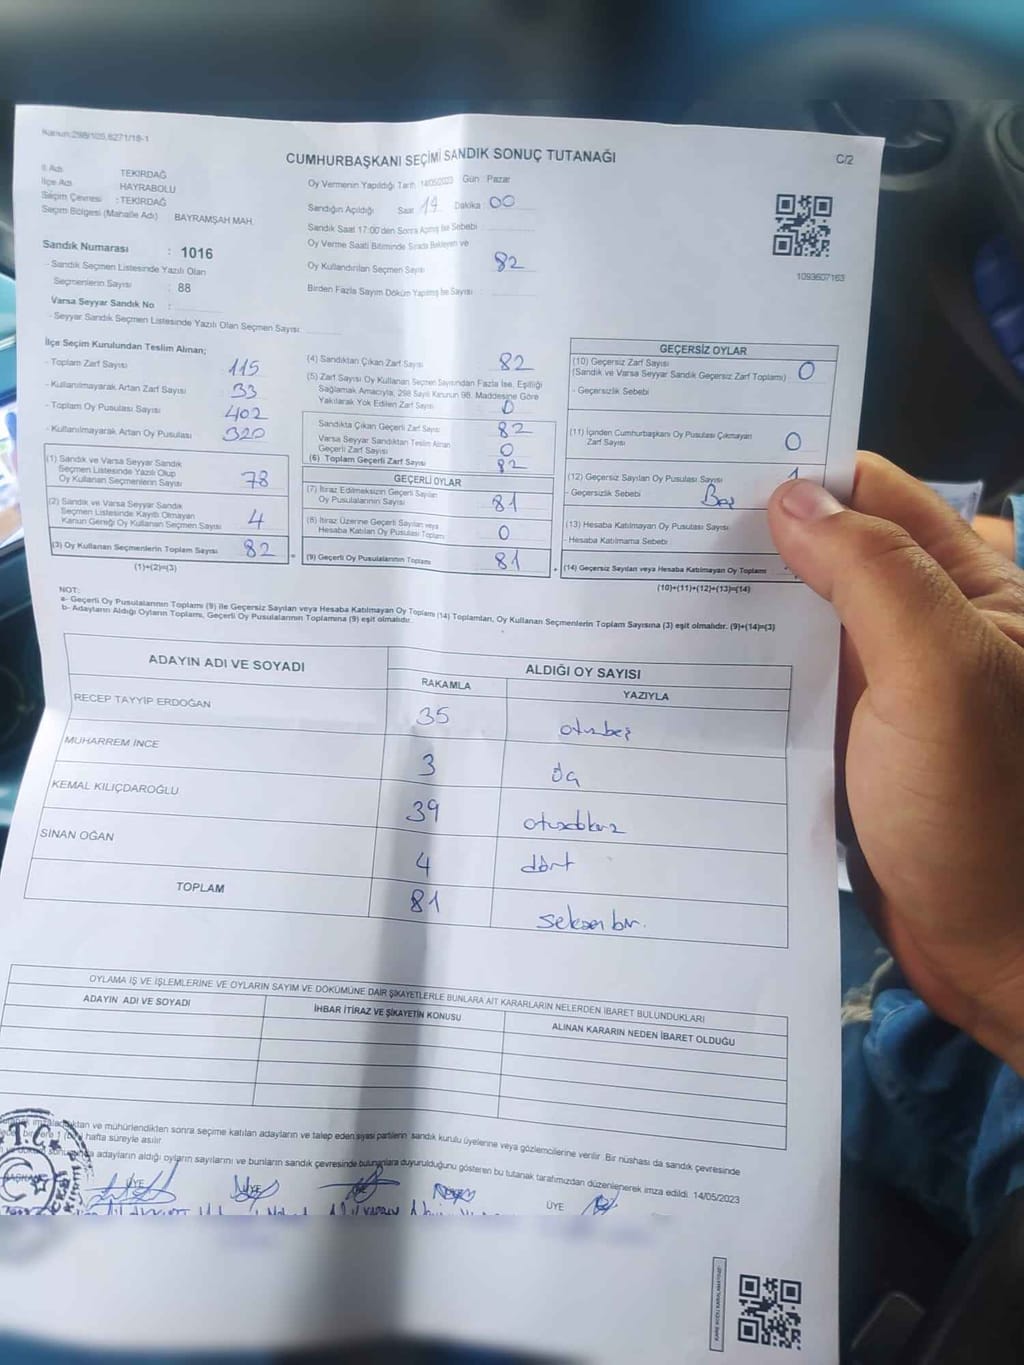 Kanun:298/105,6271/18-1
C/2
CUMHURBAŞKANI SEÇİMİ SANDIK SONUÇ TUTANAĞI
İl Adı TEKİRDAĞ
İlçe Adı HAYRABOLU
Seçim Çevresi : TEKİRDAĞ
Seçim Bölgesi (Mahalle Adı) BAYRAMŞAH MAH.
Sandık Numarası : 1016
- Sandık Seçmen Listesinde Yazılı Olan
Seçmenlerin Sayısı : 88
Varsa Seyyar Sandık No :
- Seyyar Sandık Seçmen Listesinde Yazılı Olan Seçmen Sayısı:
Oy Vermenin Yapıldığı Tarih 14/05/2023 Gün : Pazar
Sandığın Açıldığı Saat Dakika : 00
Sandık Saat 17:00'den Sonra Açmış İse Sebebi :
Oy Verme Saati Bitiminde Sırada Bekleyen ve
Oy Kullandırılan Seçmen Sayısı 82
Birden Fazla Sayım Döküm Yapılmış İse Sayısı :
1093607163
İlçe Seçim Kurulundan Teslim Alınan;
- Toplam Zarf Sayısı : 115
- Kullanılmayarak Artan Zarf Sayısı : 33
- Toplam Oy Pusulası Sayısı : 402
- Kullanılmayarak Artan Oy Pusulası : 320
(1) Sandık ve Varsa Seyyar Sandık
Seçmen Listesinde Yazılı Olup
Oy Kullanan Seçmenlerin Sayısı 78
(2) Sandık ve Varsa Seyyar Sandık
Seçmen Listesinde Kayıtlı Olmayan
Kanun Gereği Oy Kullanan Seçmen Sayısı 4
(3) Oy Kullanan Seçmenlerin Toplam Sayısı 82
(1)+(2)=(3)
(4) Sandıktan Çıkan Zarf Sayısı 82
(5) Zarf Sayısı Oy Kullanan Seçmen Sayısından Fazla İse, Eşitliği
Sağlamak Amacıyla, 298 Sayılı Kanunun 98. Maddesine Göre
Yakılarak Yok Edilen Zarf Sayısı 0
Sandıkta Çıkan Geçerli Zarf Sayısı 82
Varsa Seyyar Sandıktan Teslim Alınan
Geçerli Zarf Sayısı 0
(6) Toplam Geçerli Zarf Sayısı 82
GEÇERLİ OYLAR
(7) İtiraz Edilmeksizin Geçerli Sayılan
Oy Pusulalarının Sayısı 81
(8) İtiraz Üzerine Geçerli Sayılan veya
Hesaba Katılan Oy Pusulaları Toplamı 0
(9) Geçerli Oy Pusulalarının Toplamı 81
GEÇERSİZ OYLAR
(10) Geçersiz Zarf Sayısı
(Sandık ve Varsa Seyyar Sandık Geçersiz Zarf Toplamı) 0
- Geçersizlik Sebebi
(11) İçinden Cumhurbaşkanı Oy Pusulası Çıkmayan
Zarf Sayısı 0
(12) Geçersiz Sayılan Oy Pusulası Sayısı 1
- Geçersizlik Sebebi Boş
(13) Hesaba Katılmayan Oy Pusulası Sayısı
- Hesaba Katılmama Sebebi
(14) Geçersiz Sayılan veya Hesaba Katılmayan Oy Toplamı
(10)+(11)+(12)+(13)=(14)
NOT:
a- Geçerli Oy Pusulalarının Toplamı (9) ile Geçersiz Sayılan veya Hesaba Katılmayan Oy Toplamı (14) Toplamları, Oy Kullanan Seçmenlerin Toplam Sayısına (3) eşit olmalıdır. (9)+(14)=(3)
b- Adayların Aldığı Oyların Toplamı, Geçerli Oy Pusulalarının Toplamına (9) eşit olmalıdır.
ADAYIN ADI VE SOYADI ALDIĞI OY SAYISI
RAKAMLA YAZIYLA
RECEP TAYYİP ERDOĞAN 35 otuzbeş
MUHARREM İNCE 3 üç
KEMAL KILIÇDAROĞLU 39 otuzdokuz
SİNAN OĞAN 4 dört
TOPLAM 81 seksen bir.
OYLAMA İŞ VE İŞLEMLERİNE VE OYLARIN SAYIM VE DÖKÜMÜNE DAİR ŞİKAYETLERLE BUNLARA AİT KARARLARIN NELERDEN İBARET BULUNDUKLARI
ADAYIN ADI VE SOYADI İHBAR İTİRAZ VE ŞİKAYETİN KONUSU ALINAN KARARIN NEDEN İBARET OLDUĞU
ve mühürlendikten sonra seçime katılan adayların ve talep eden siyasi partilerin sandık kurulu üyelerine veya gözlemcilerine verilir. Bir nüshası da sandık çevresinde
hafta süreyle asılır.
adayların aldığı oyların sayılarını ve bunların sandık çevresinde bulunanlara duyurulduğunu gösteren bu tutanak tarafımızdan düzenlenerek imza edildi. 14/05/2023
T.C.
BAŞKAN ÜYE ÜYE ÜYE